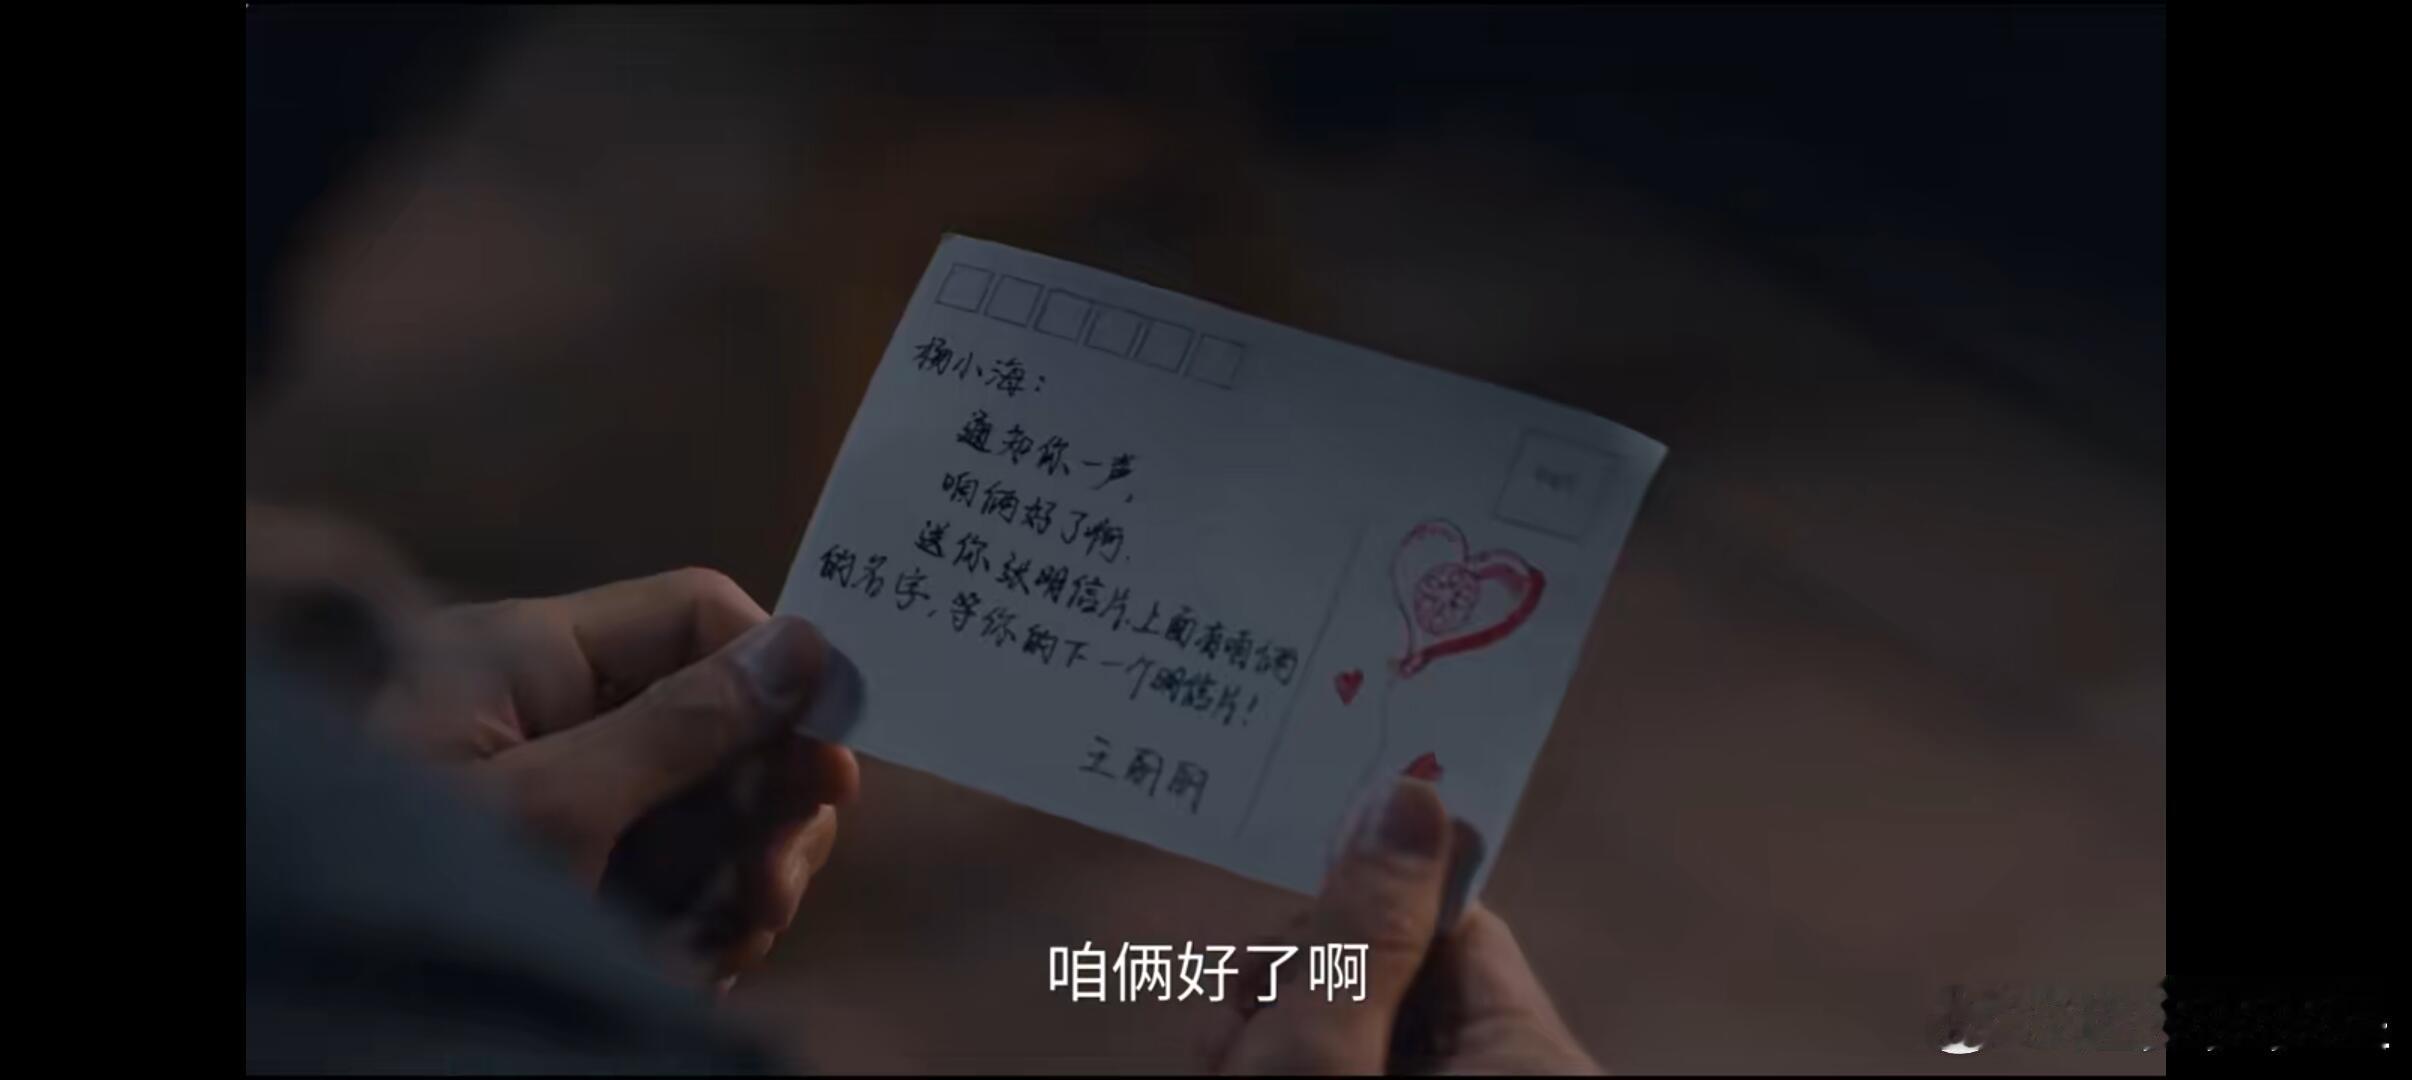 杨小海：
通知你一声，
咱俩好了啊.
送你张明信片.上面有咱俩
的名字，等你的下一个明信片！
王丽丽
咱俩好了啊